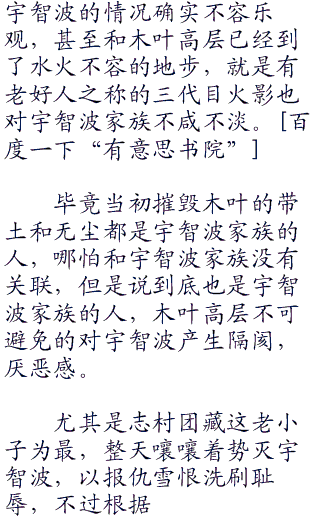 宇智波的情况确实不容乐
观，甚至和木叶高层已经到
了水火不容的地步，就是有
老好人之称的三代目火影也
对宇智波家族不咸不淡。[百
度一下“有意思书院”]
毕竟当初摧毁木叶的带
土和无尘都是宇智波家族的
人，哪怕和宇智波家族没有
关联，但是说到底也是宇智
波家族的人，木叶高层不可
避免的对宇智波产生隔阂，
厌恶感。
尤其是志村团藏这老小
子为最，整天嚷嚷着势灭宇
智波，以报仇雪恨洗刷耻
辱，不过根据